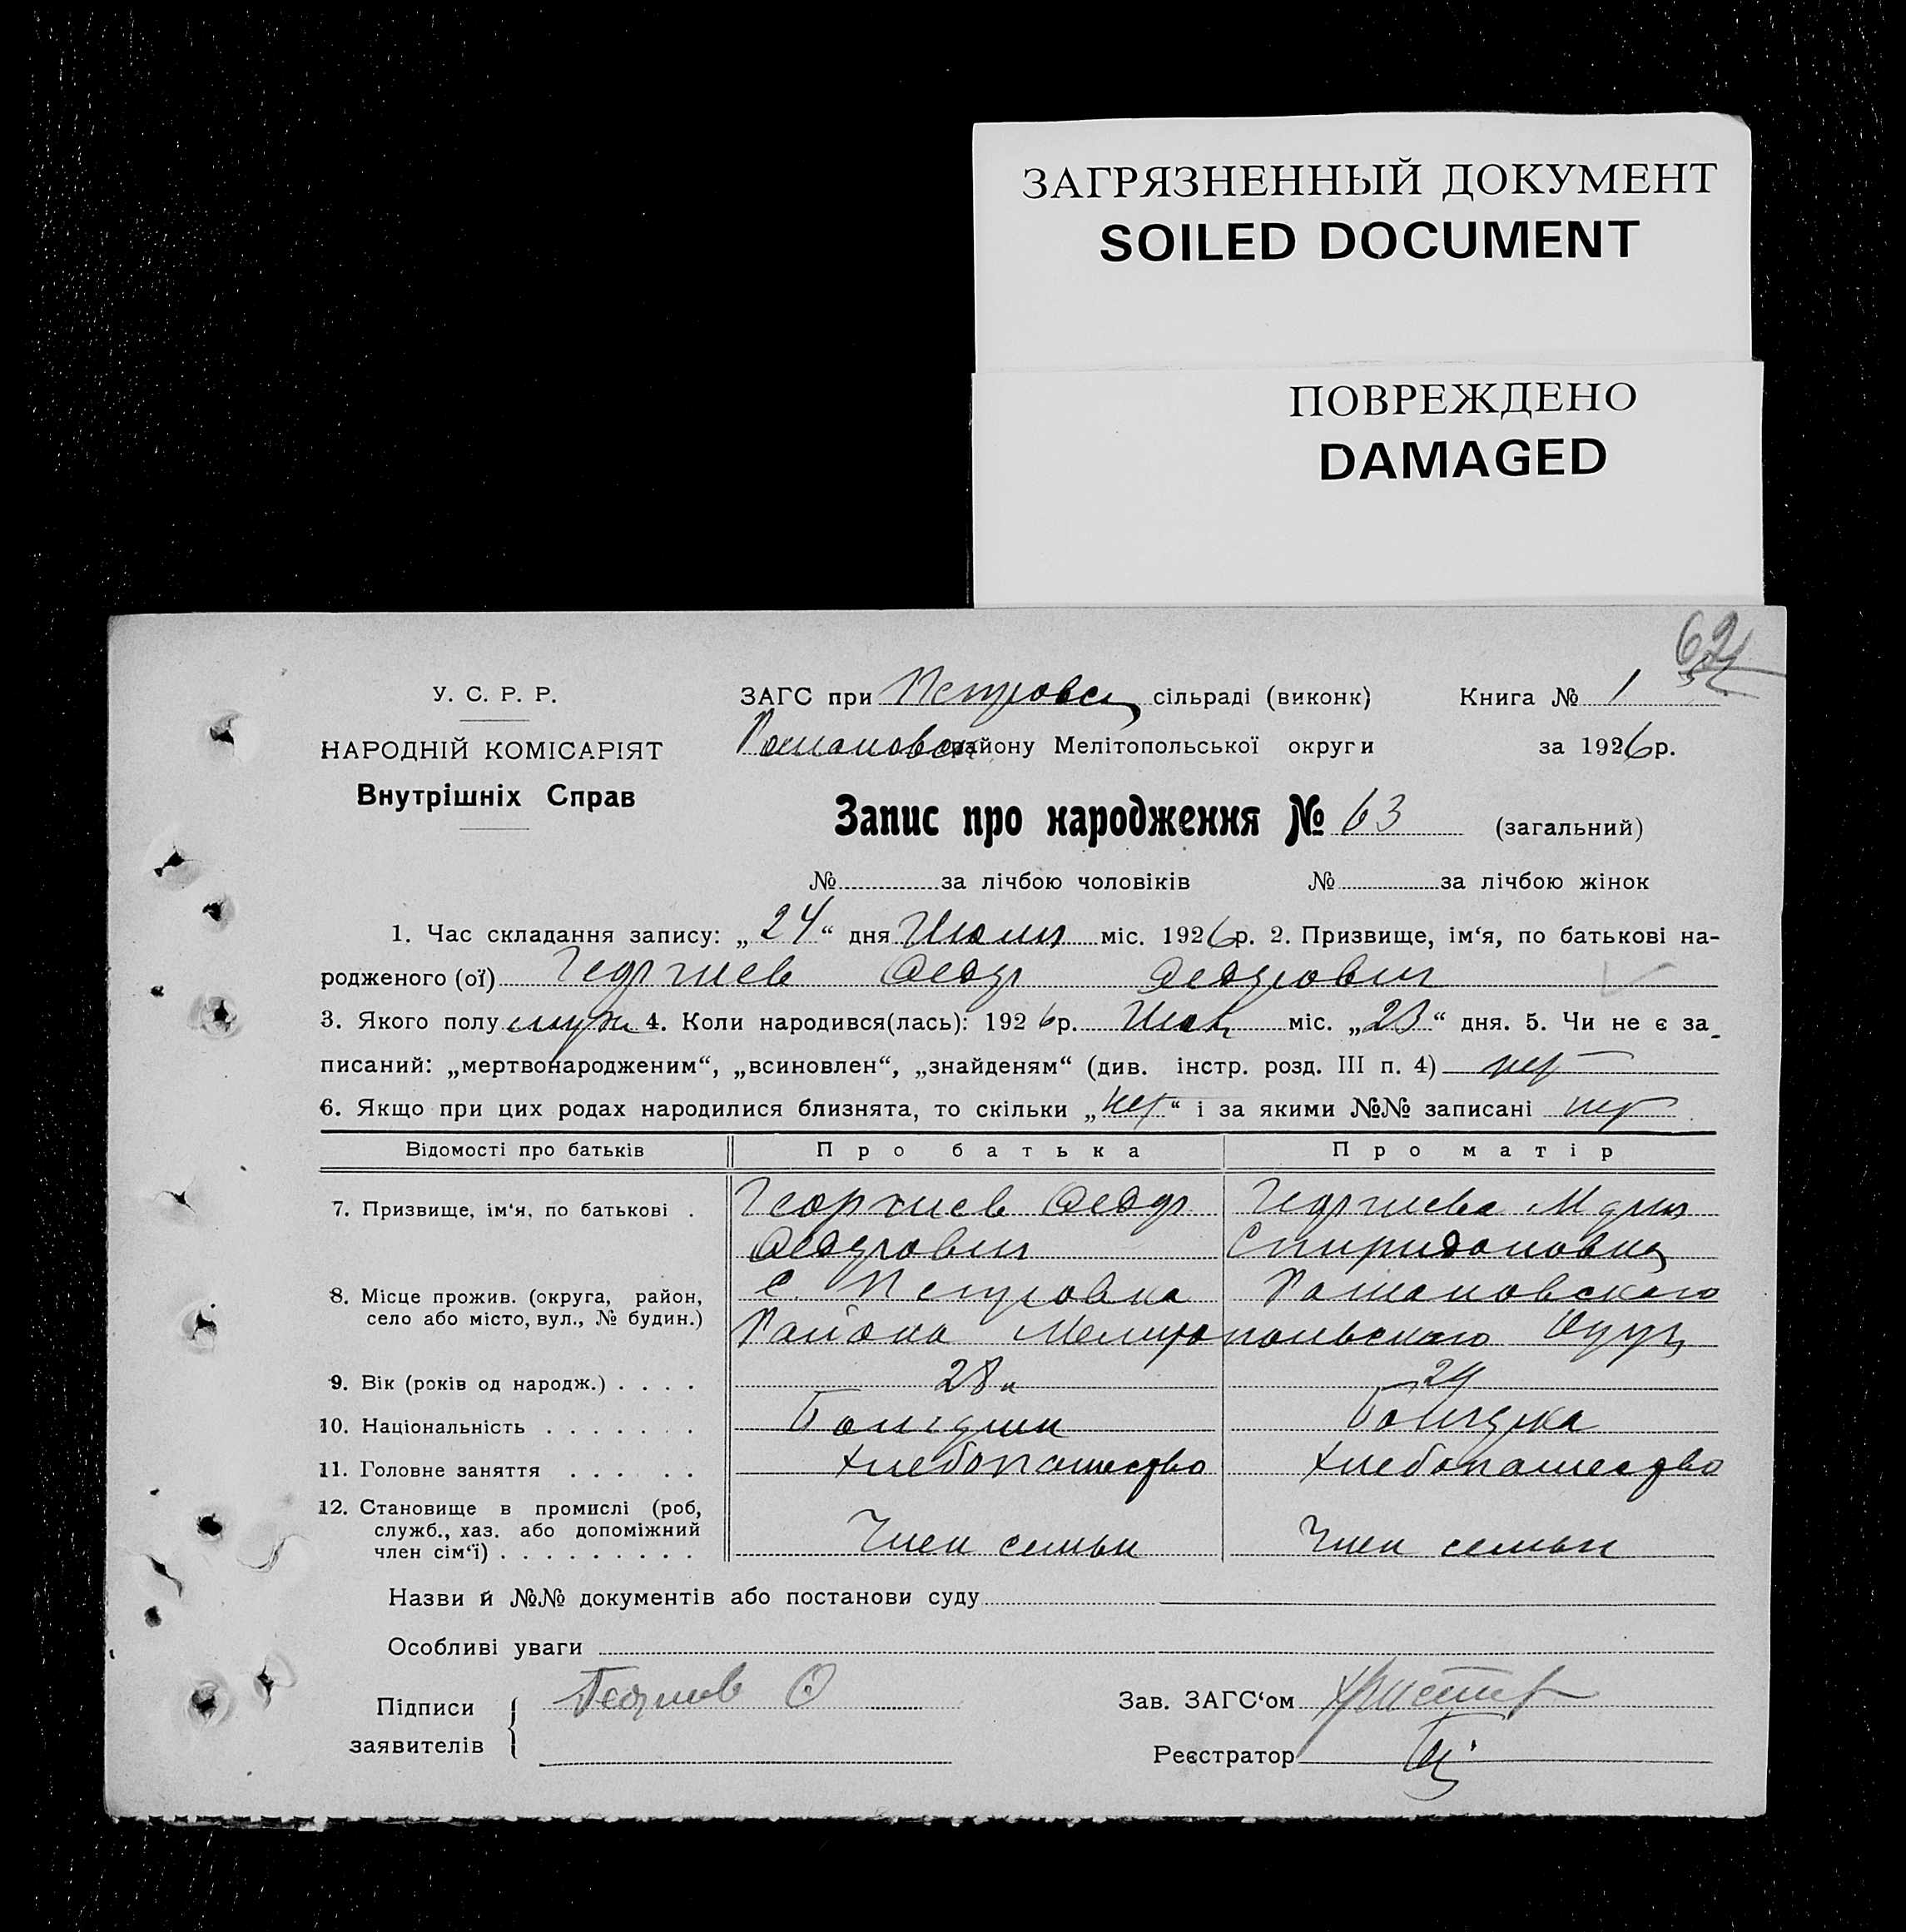 ЗАГРЯЗНЕННЫЙ ДОКУМЕНТ
SOILED DOCUMENT
ПОВРЕЖДЕНО
DAMAGED
62
У. С. Р. Р.
НАРОДНІЙ КОМІСАРІЯТ
Внутрішніх Справ
ЗАГС при Петровск сільраді (виконк) Книга № 1
Романовск району Мелітопольської округи за 1926р.
Запис про народження № 63 (загальний)
№ за лічбою чоловіків № за лічбою жінок
1. Час складання запису: „24“ дня Июля міс. 1926р. 2. Призвище, ім‘я, по батькові на-
родженого (ої) Георгиев Федор Федорович
3. Якого полу муж 4. Коли народився(лась): 1926р. міс. „23“ дня. 5. Чи не є за-
писаний: „мертвонародженим“, „всиновлен“, „знайденям“ (див. інстр. розд. III п. 4) нет
6. Якщо при цих родах народилися близнята, то скільки „нет“ і за якими №№ записані нет
Відомості про батьків Про батька Про матір
7. Призвище, ім‘я, по батькові . Георгиев Федор Георгиева Мария
Федорович Спиридоновна
8. Місце прожив. (округа, район, село або місто, вул., № будин.) с. Петровка Романовского
Района Мелитопольского Округа
9. Вік (років од народж.) . . . . 28 24
10. Національність . . . . . . . Болгарин Болгарка
11. Головне заняття . . . . . . Хлебопашество Хлебопашество
12. Становище в промислі (роб, служб., хаз. або допоміжний член сім‘ї) . . . . . . . . . Член семьи Член семьи
Назви й №№ документів або постанови суду
Особливі уваги
Підписи заявителів Георгиев Ф
Зав. ЗАГС‘ом
Реєстратор